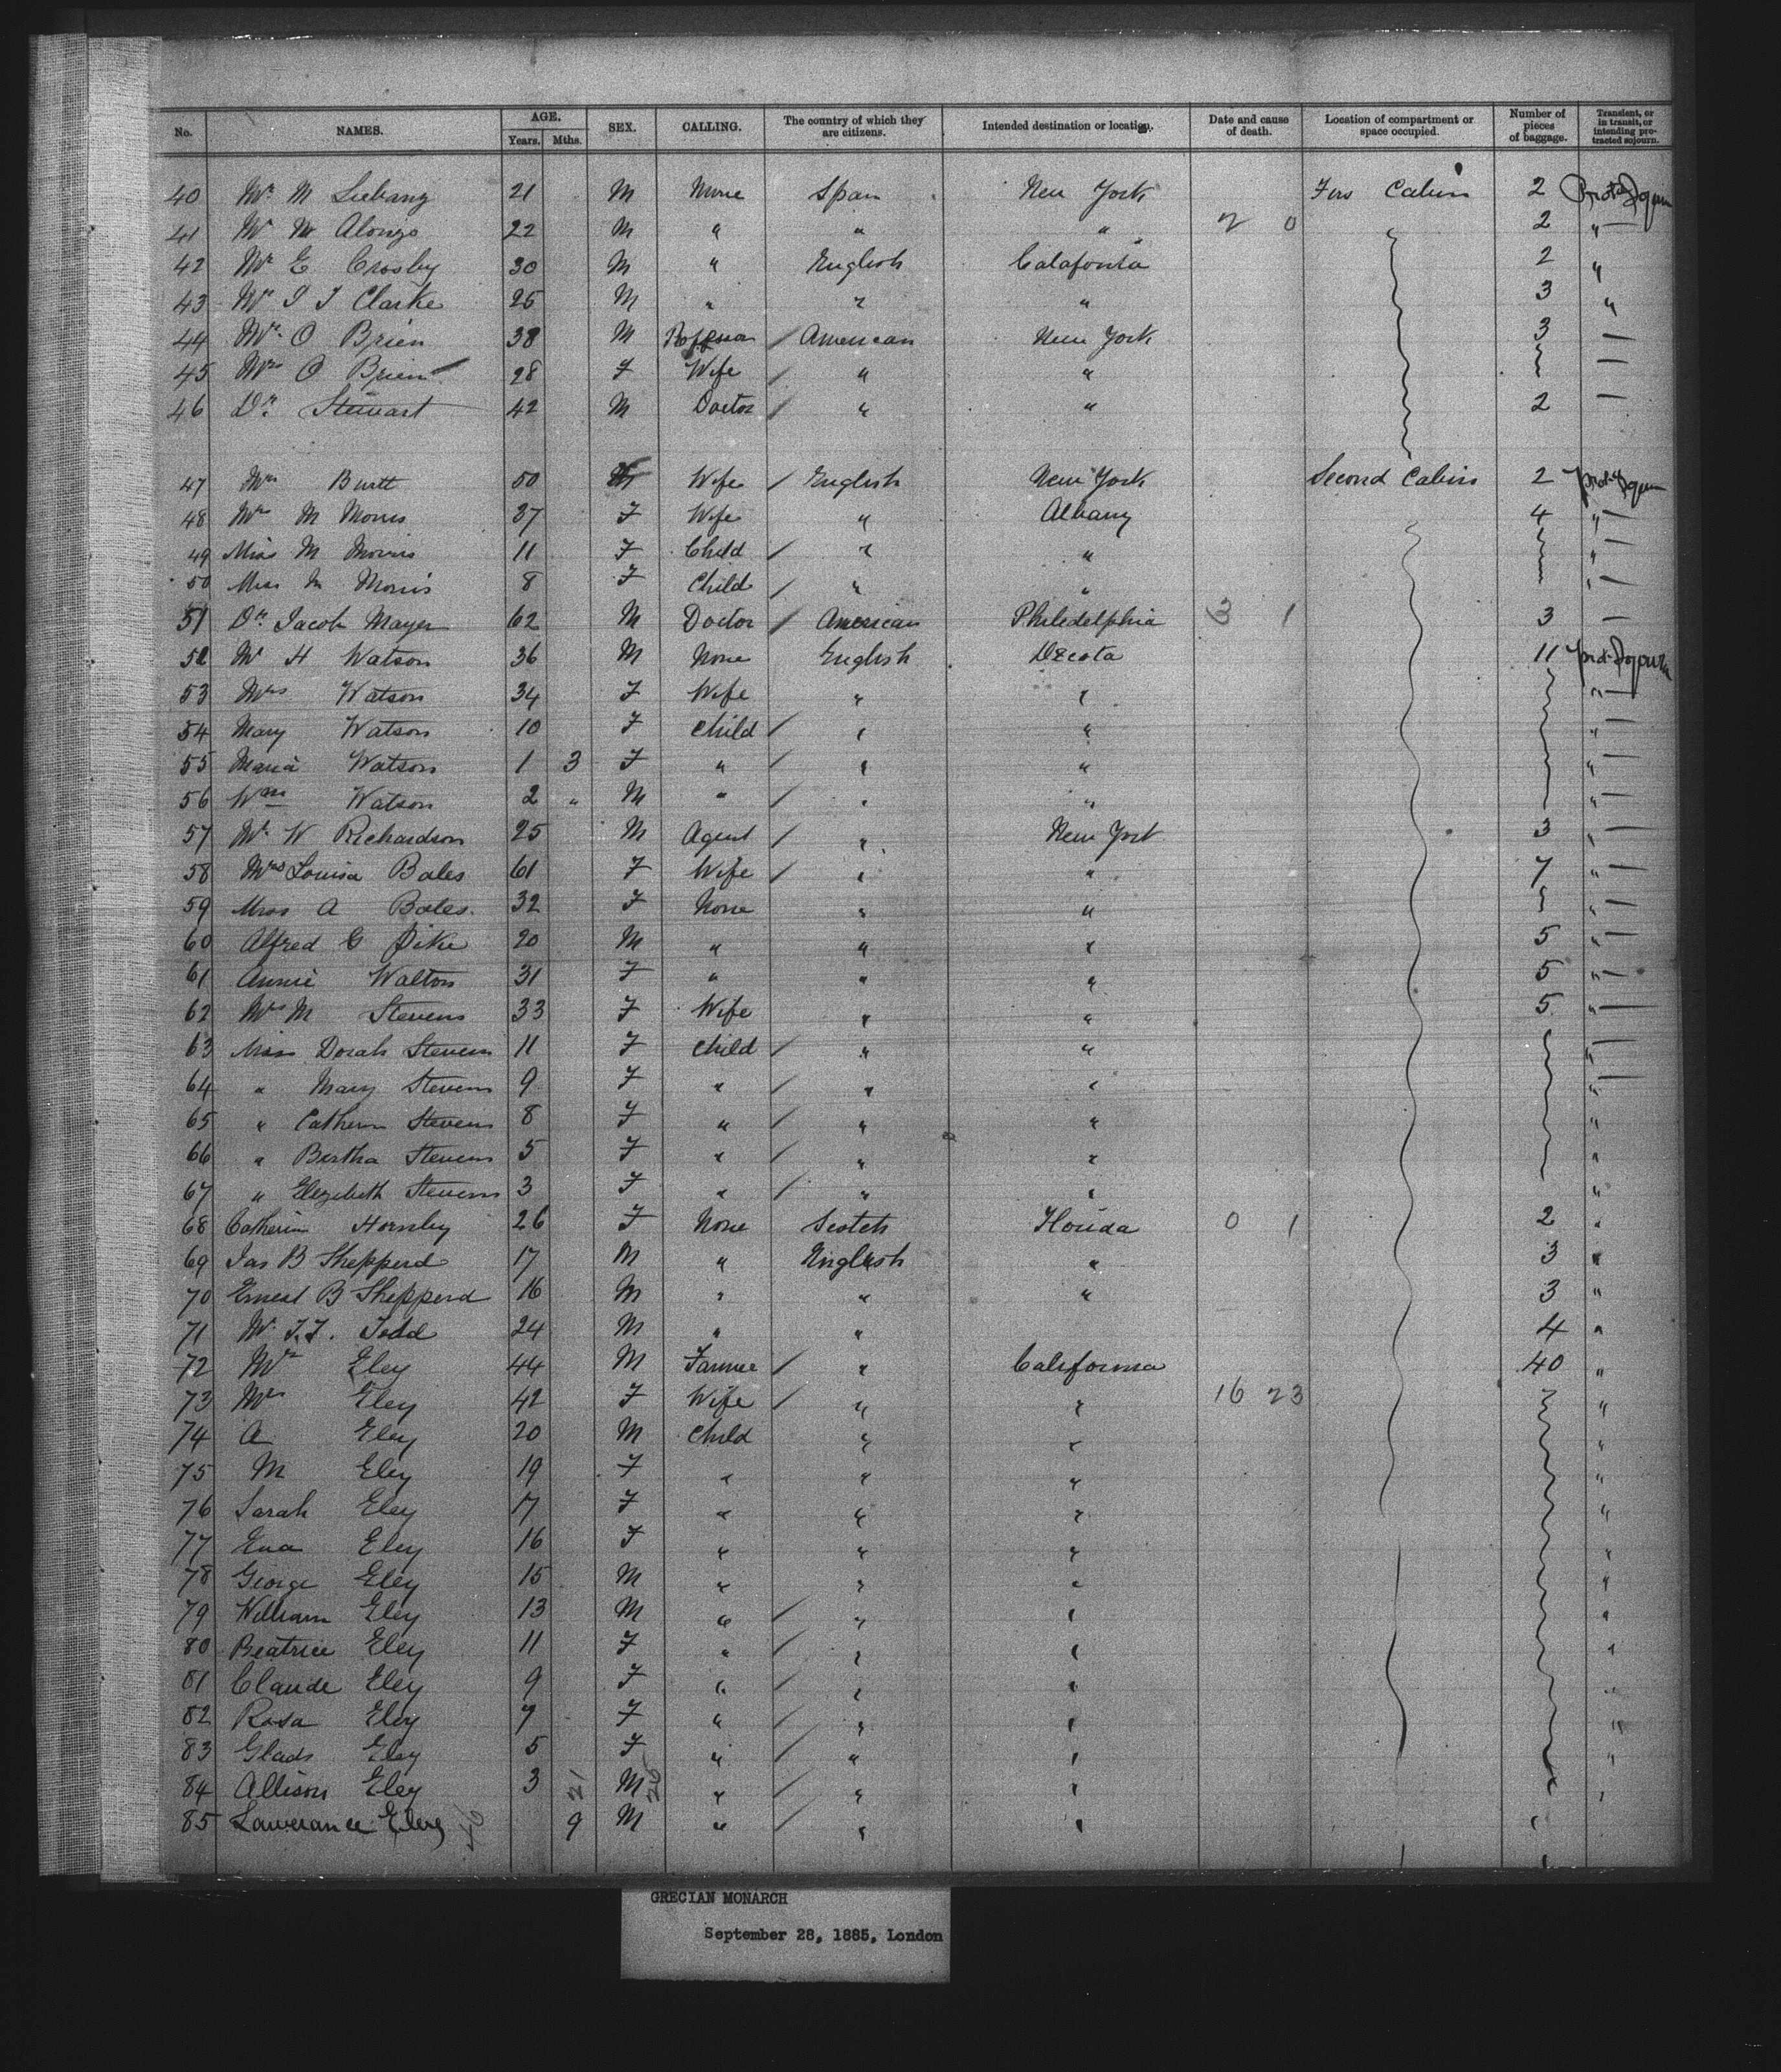 No. NAMES. AGE. Years. Mths. SEX. CALLING. The country of which they are citizens. Intended destination or location. Date and cause of death. Location of compartment or space occupied. Number of pieces of baggage. Transient, or in transit, or intending protracted sojourn.
40 Mr M 21 M None Spain New York Cabin 2
41 Mr M Alonzo 22 M " " " 2 0 2 "
42 Mr E Crosby 30 M " English Calafonia 2 "
43 Mr J J Clarke 25 M " " " 3 "
44 Mr O Brien 38 M American New York 3 —
45 Mrs O Brien 28 F Wife " " —
46 Dr Stewart 42 M Doctor " " 2 —
47 Mrs Burtt 50 Wife English New York Second Cabin 2
48 Mrs M Morris 37 F Wife " Albany 4 "
49 Miss M Morris 11 F Child " " "
50 Miss M Morris 8 F Child " " "
51 Dr Jacob Mayer 62 M Doctor American Philedelphia 3 1 3 —
52 Mr H Watson 36 M None English 11
53 Mrs Watson 34 F Wife " " "
54 Mary Watson 10 F Child " " "
55 Maria Watson 1 3 F " " " "
56 Wm Watson 2 " M " " " "
57 Mr W Richardson 25 M Agent " New York 3 "
58 Mrs Louisa Bales 61 F Wife " " 7 "
59 Miss A Bales. 32 F None " " "
60 Alfred G Pike 20 M " " " 5 "
61 Annie Walton 31 F " " " 5 "
62 Mrs M Stevens 33 F Wife " " 5 "
63 Miss Dorah Stevens 11 F Child " " "
64 " Mary Stevens 9 F " " " "
65 " Cathern Stevens 8 F " " " "
66 " Bertha Stevens 5 F " " " "
67 " Elezebeth Stevens 3 F " " " "
68 Catherin Hornby 26 F None Scotch Florida 0 1 2 "
69 Jas B Shepperd 17 M " English " 3 "
70 Ernest B Shepperd 16 M " " " 3 "
71 Mr T.J. Todd 24 M " " 4 "
72 Mr Eley 44 M Farmer " California 40 "
73 Mrs Eley 42 F Wife " " 16 23 "
74 A Eley 20 M Child " " "
75 M Eley 19 F " " " "
76 Sarah Eley 17 F " " " "
77 Eva Eley 16 F " " " "
78 George Eley 15 M " " " "
79 William Eley 13 M " " " "
80 Beatrice Eley 11 F " " " "
81 Claude Eley 9 F " " " "
82 Rosa Eley 7 F " " " "
83 Glads Eley 5 F " " " "
84 Allison Eley 3 21 M 26 " " " "
85 Lawerance Eley 46 9 M " " "
GRECIAN MONARCH
September 28, 1885, London